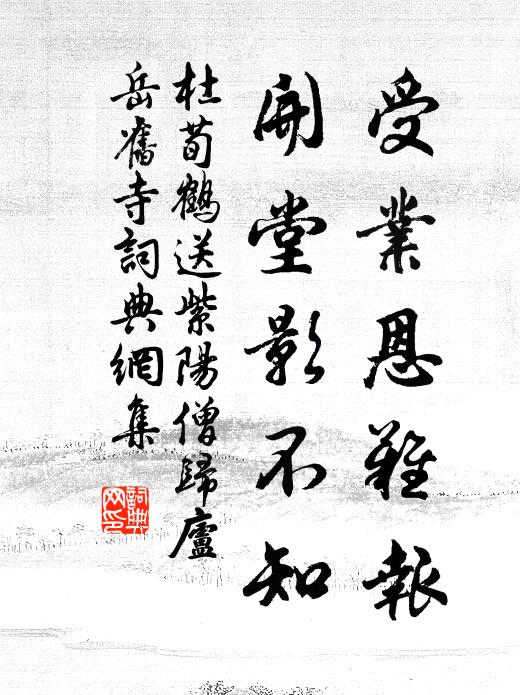 受業恩難報
開堂影不知
杜荀鶴送紫陽僧歸廬
岳舊寺詞典網集
詞典
网印